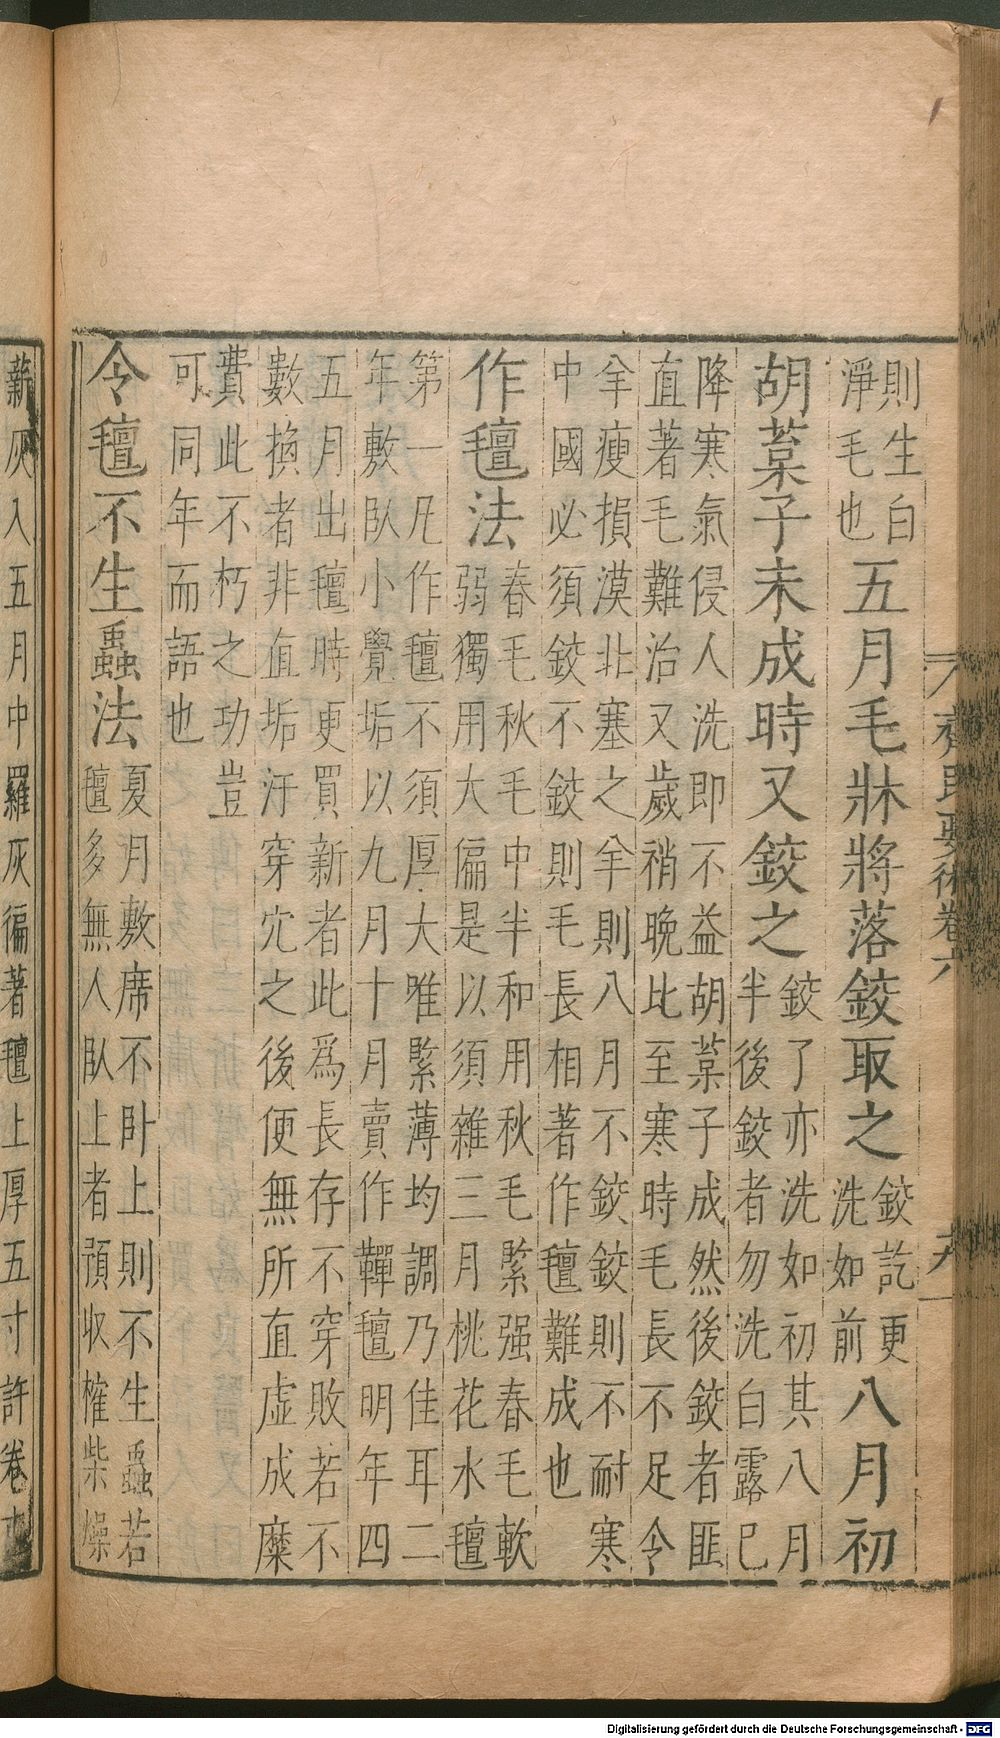 齊民要術卷六
則生白
淨毛也
五月毛牀將落鉸取之
鉸訖更
洗如前
八月初
胡葈子未成時又鉸之
鉸了亦洗如初其八月
半後鉸者勿洗白露已
降寒氣侵人洗即不益胡葈子成然後鉸者匪
直著毛難治又歲稍晚比至寒時毛長不足令
羊瘦損漠北塞之羊則八月不鉸鉸則不耐寒
中國必須鉸不鉸則毛長相著作氊難成也
作氊法
春毛秋毛中半和用秋毛緊强春毛軟
弱獨用大偏是以須雜三月桃花水氊
第一凡作氊不須厚大唯緊薄均調乃佳耳二
年敷臥小覺垢以九月十月賣作鞾氊明年四
五月出氊時更買新者此爲長存不穿敗若不
數換者非直垢汙穿穴之後便無所直虛成糜
費此不朽之功豈
可同年而語也
令氊不生蟲法
夏月敷席不卧上則不生蟲若
氊多無人臥上者預收榷柴燥
薪灰入五月中羅灰徧著氊上厚五寸許卷
Digitalisierung gefördert durch die Deutsche Forschungsgemeinschaft - DFG